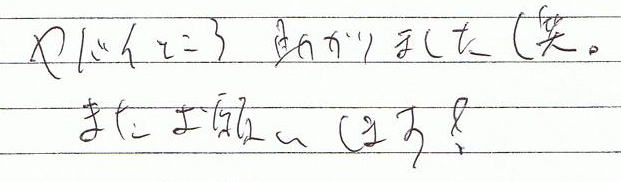 やばいところ 助かりました(笑。
またお願いします!